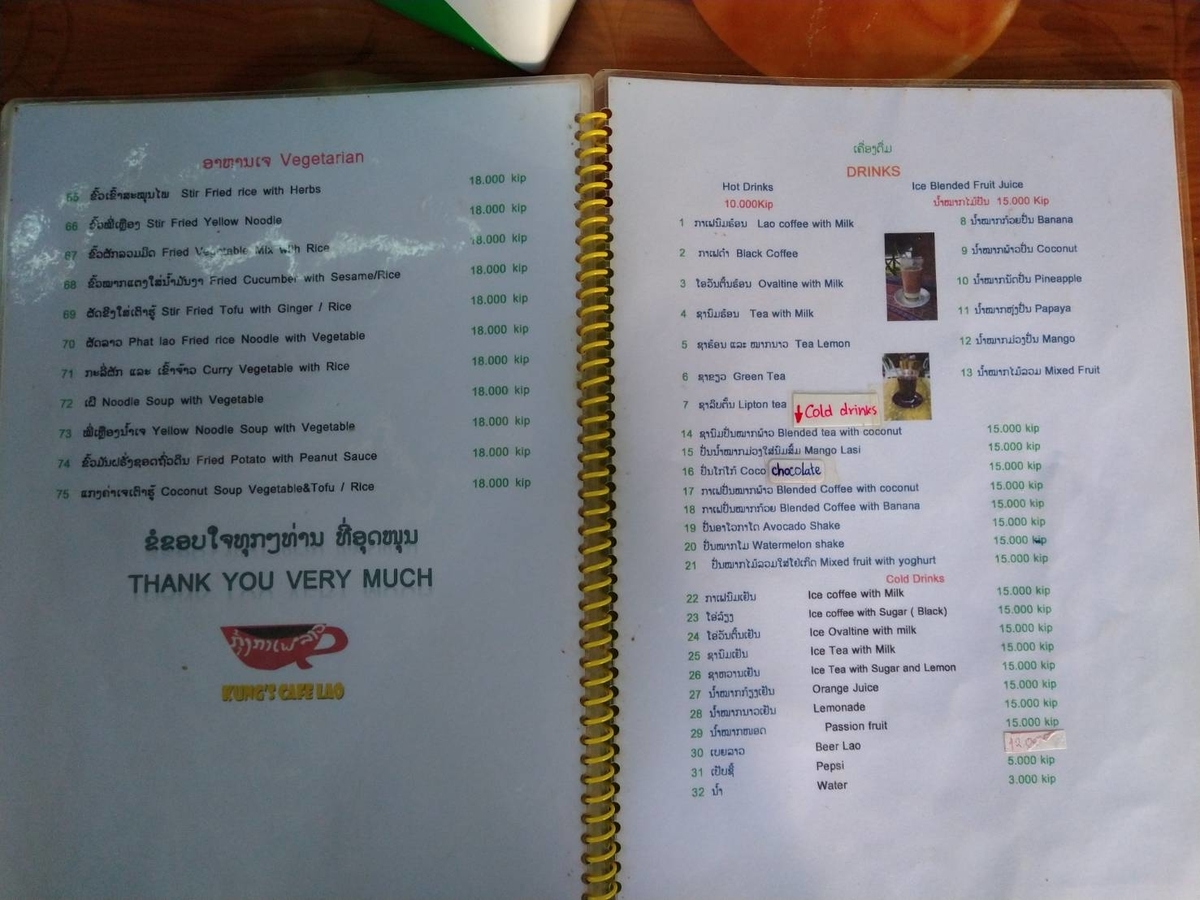 ອາຫານເຈ Vegetarian
65 ຂົ້ວເຂົ້າສະໝຸນໄພ Stir Fried rice with Herbs 18.000 kip
66 ຂົ້ວໝີ່ເຫຼືອງ Stir Fried Yellow Noodle 18.000 kip
67 ຂົ້ວຜັກລວມມິດ Fried Vegetable Mix with Rice 18.000 kip
68 ຂົ້ວໝາກແຕງໃສ່ນ້ຳມັນງາ Fried Cucumber with Sesame/Rice 18.000 kip
69 ຜັດຂີງໃສ່ເຕົາຮູ້ Stir Fried Tofu with Ginger / Rice 18.000 kip
70 ຜັດລາວ Phat lao Fried rice Noodle with Vegetable 18.000 kip
71 ກະລີ່ຜັກ ແລະ ເຂົ້າຈ້າວ Curry Vegetable with Rice 18.000 kip
72 ເຝີ Noodle Soup with Vegetable 18.000 kip
73 ໝີ່ເຫຼືອງນ້ຳເຈ Yellow Noodle Soup with Vegetable 18.000 kip
74 ຂົ້ວມັນຝຣັ່ງຊອດຖົ່ວດິນ Fried Potato with Peanut Sauce 18.000 kip
75 ແກງຄ່າເຈເຕົາຮູ້ Coconut Soup Vegetable&Tofu / Rice 18.000 kip
ຂໍຂອບໃຈທຸກໆທ່ານ ທີ່ອຸດໜຸນ
THANK YOU VERY MUCH
ກຸ້ງກາເຟລາວ
KUNG'S CAFE LAO
ເຄື່ອງດື່ມ
DRINKS
Hot Drinks
10.000Kip
1 ກາເຟນົມຮ້ອນ Lao coffee with Milk
2 ກາເຟດຳ Black Coffee
3 ໂອວັນຕິນຮ້ອນ Ovaltine with Milk
4 ຊານົມຮ້ອນ Tea with Milk
5 ຊາຮ້ອນ ແລະ ໝາກນາວ Tea Lemon
6 ຊາຂຽວ Green Tea
7 ຊາລິບຕັ້ນ Lipton tea
Ice Blended Fruit Juice
ນ້ຳໝາກໄມ້ປັ່ນ 15.000 Kip
8 ນ້ຳໝາກກ້ວຍປັ່ນ Banana
9 ນ້ຳໝາກພ້າວປັ່ນ Coconut
10 ນ້ຳໝາກນັດປັ່ນ Pineapple
11 ນ້ຳໝາກຫຸ່ງປັ່ນ Papaya
12 ນ້ຳໝາກມ່ວງປັ່ນ Mango
13 ນ້ຳໝາກໄມ້ລວມ Mixed Fruit
↓ Cold drinks
14 ຊານົມປັ່ນໝາກພ້າວ Blended tea with coconut 15.000 kip
15 ປັ່ນນ້ຳໝາກມ່ວງໃສ່ນົມສົ້ມ Mango Lasi 15.000 kip
16 ປັ່ນໂກໂກ້ Coco chocolate 15.000 kip
17 ກາເຟປັ່ນໝາກພ້າວ Blended Coffee with coconut 15.000 kip
18 ກາເຟປັ່ນໝາກກ້ວຍ Blended Coffee with Banana 15.000 kip
19 ປັ່ນອາໂວກາໂດ Avocado Shake 15.000 kip
20 ປັ່ນໝາກໂມ Watermelon shake 15.000 kip
21 ປັ່ນໝາກໄມ້ລວມໃສ່ໂຢເກີດ Mixed fruit with yoghurt 15.000 kip
Cold Drinks
22 ກາເຟນົມເຢັນ Ice coffee with Milk 15.000 kip
23 ໂອ່ລ້ຽງ Ice coffee with Sugar ( Black) 15.000 kip
24 ໂອວັນຕິນເຢັນ Ice Ovaltine with milk 15.000 kip
25 ຊານົມເຢັນ Ice Tea with Milk 15.000 kip
26 ຊາຫວານເຢັນ Ice Tea with Sugar and Lemon 15.000 kip
27 ນ້ຳໝາກກ້ຽງເຢັນ Orange Juice 15.000 kip
28 ນ້ຳໝາກນາວເຢັນ Lemonade 15.000 kip
29 ນ້ຳໝາກໜອດ Passion fruit 15.000 kip
30 ເບຍລາວ Beer Lao
31 ເປັບຊີ້ Pepsi 5.000 kip
32 ນ້ຳ Water 3.000 kip